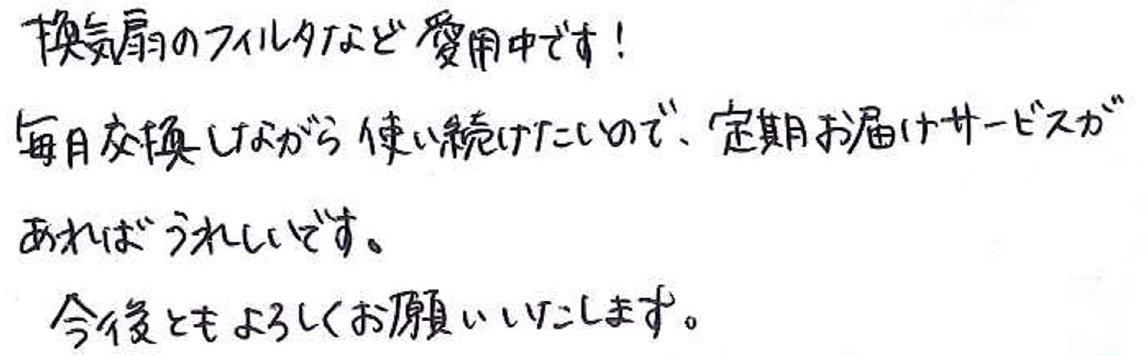 換気扇のフィルタなど愛用中です!
毎月交換しながら使い続けたいので、定期お届けサービスが
あればうれしいです。
今後ともよろしくお願いいたします。